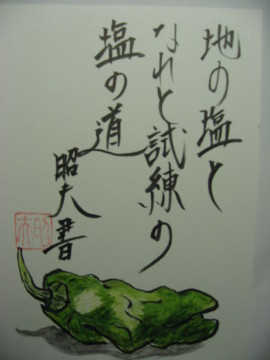 地の塩と
なれと試練の
塩の道
昭夫書
昭夫